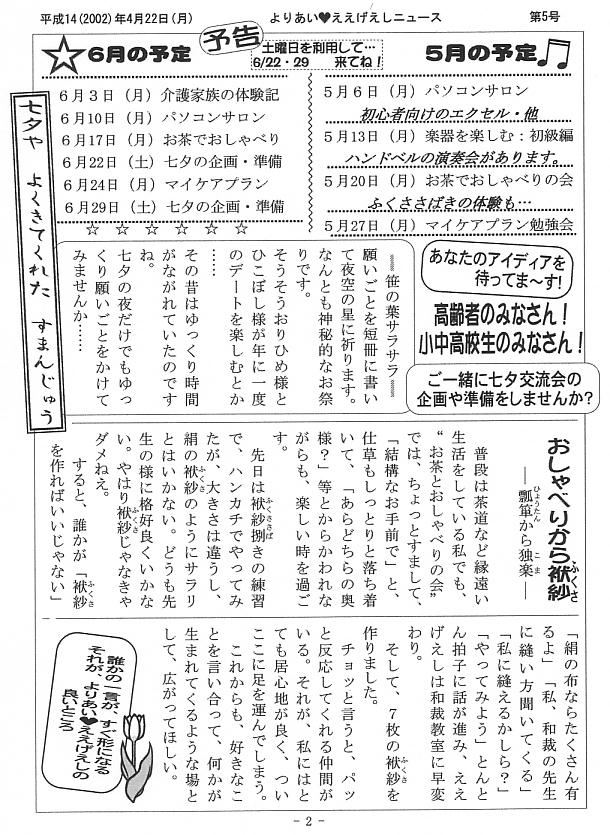 平成14(2002)年4月22日(月)　よりあい♥ええげえしニュース　第5号
予告
土曜日を利用して…
6/22・29　来てね!
☆6月の予定
6月3日(月)介護家族の体験記
6月10日(月)パソコンサロン
6月17日(月)お茶でおしゃべり
6月22日(土)七夕の企画・準備
6月24日(月)マイケアプラン
6月29日(土)七夕の企画・準備
☆ ☆ ☆ ☆ ☆ ☆
5月の予定♫
5月6日(月)パソコンサロン
初心者向けのエクセル・他
5月13日(月)楽器を楽しむ:初級編
ハンドベルの演奏会があります。
5月20日(月)お茶でおしゃべりの会
ふくささばきの体験も…
5月27日(月)マイケアプラン勉強会
七夕や　よくきてくれた　すまんじゅう
あなたのアイディアを
待ってま~す!
高齢者のみなさん!
小中高校生のみなさん!
ご一緒に七夕交流会の
企画や準備をしませんか?
笹の葉サラサラ
願いごとを短冊に書い
て夜空の星に祈ります。
なんとも神秘的なお祭
りです。
そうそうおりひめ様と
ひこぼし様が年に一度
のデートを楽しむとか
……
その昔はゆっくり時間
がながれていたのです
ね。
七夕の夜だけでもゆっ
くり願いごとをかけて
みませんか……
おしゃべりから袱紗
ふくさ
―瓢箪から独楽―
ひょうたん　こま
普段は茶道など縁遠い
生活をしている私でも、
"お茶とおしゃべりの会"
では、ちょっとすまして、
「結構なお手前で」と、
仕草もしっとりと落ち着
いて、「あらどちらの奥
様?」等とからかわれな
がらも、楽しい時を過ご
す。
先日は袱紗捌きの練習
ふくささば
で、ハンカチでやってみ
たが、大きさは違うし、
絹の袱紗のようにサラリ
ふくさ
とはいかない。どうも先
生の様に格好良くいかな
い。やはり袱紗じゃなきゃ
ふくさ
ダメねえ。
すると、誰かが「袱紗
ふくさ
を作ればいいじゃない」
「絹の布ならたくさん有
るよ」「私、和裁の先生
に縫い方聞いてくる」
「私に縫えるかしら?」
「やってみよう」とんと
ん拍子に話が進み、ええ
げえしは和裁教室に早変
わり。
そして、7枚の袱紗を
ふくさ
作りました。
チョッと言うと、パッ
と反応してくれる仲間が
いる。それが、私にはと
ても居心地が良く、つい
ここに足を運んでしまう。
これからも、好きなこ
とを言い合って、何かが
生まれてくるような場と
して、広がってほしい。
誰かの一言が、すぐ形になる
それが、よりあい♥ええげえしの
良いところ
- 2 -